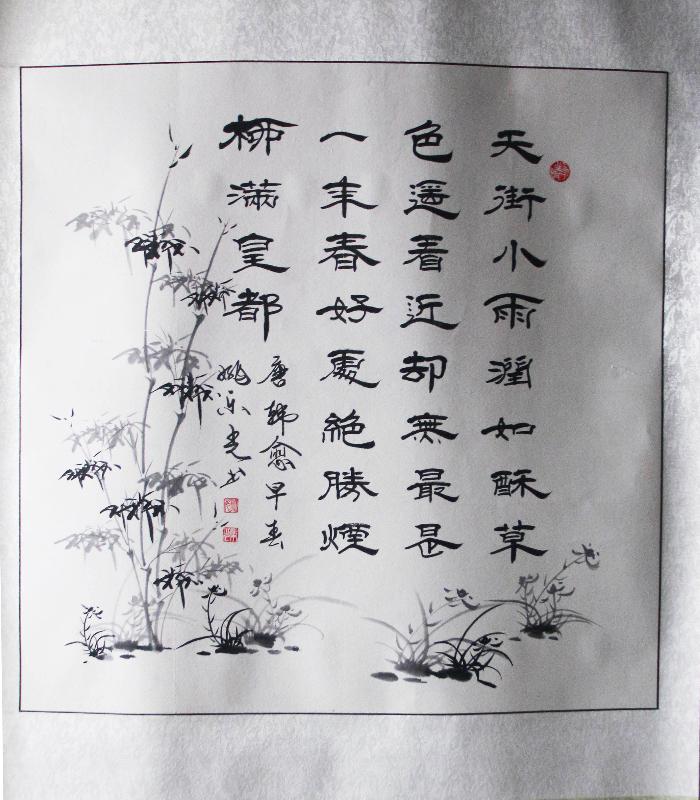 天街小雨潤如酥草
色遥看近却無最是
一年春好處絶勝煙
柳滿皇都
唐韩愈早春
姚乐光书